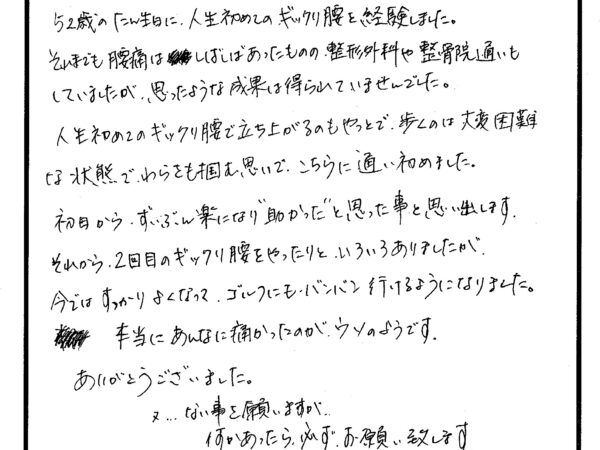 52歳のたん生日に、人生初めてのギックリ腰を経験しました。
それまでも腰痛はしばしばあったものの、整形外科や整骨院通いも
していましたが、思ったような成果は得られていませんでした。
人生初めてのギックリ腰で立ち上がるのもやっとで、歩くのは大変困難
な状態で、わらをも掴む思いで、こちらに通い初めました。
初日から、ずいぶん楽になり"助かった"と思った事を思い出します。
それから、2回目のギックリ腰をやったりと、いろいろありましたが、
今ではすっかりよくなって、ゴルフにも、バンバン行けるようになりました。
本当にあんなに痛かったのが、ウソのようです。
ありがとうございました。
又...ない事を願いますが...
何かあったら、必ず、お願い致します